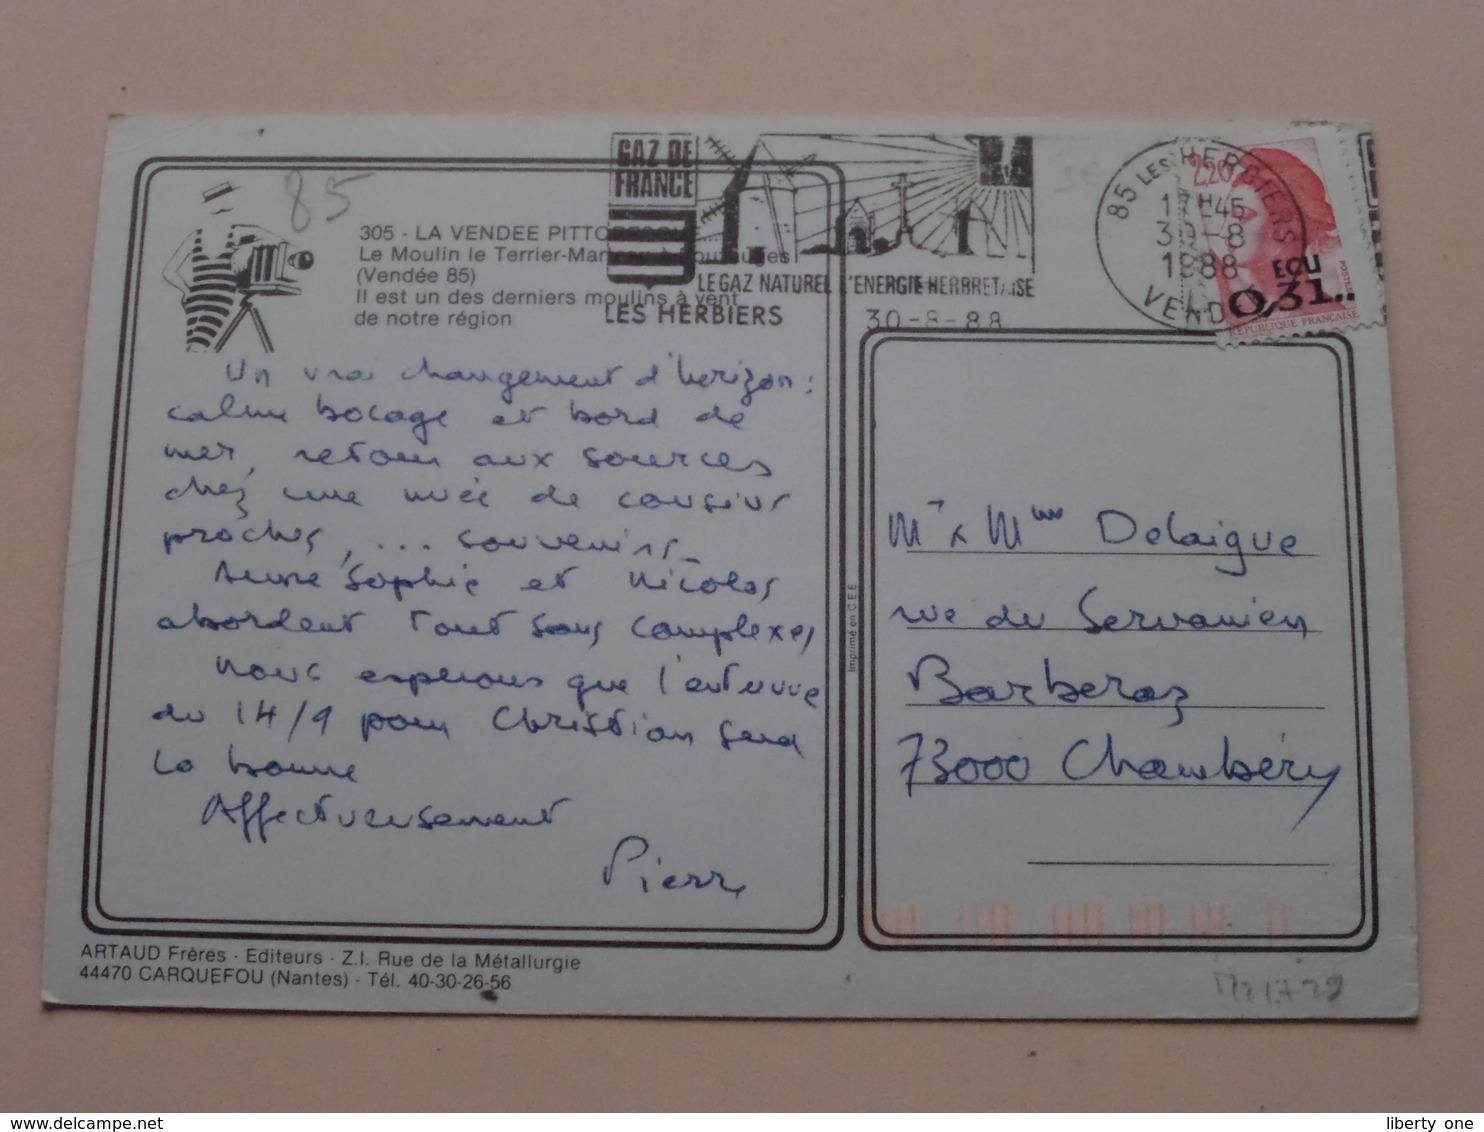 85
305 - LA VENDEE
Le Moulin le
(Vendée 85)
Il est un des derniers moulins à vent
de notre région
GAZ DE
FRANCE
LE GAZ NATUREL L'ENERGIE HERBRETAISE
LES HERBIERS
30-8-88
85 LES HERBIERS
17H45
30-8
1988
VENDEE
2,20
ECU
0,31..
POSTES
REPUBLIQUE FRANÇAISE
Un vrai changement d'horizon :
calme bocage et bord de
mer, retour aux sources
chez une nuée de cousins
proches, ... souvenirs_
Anne Sophie et Nicolas
abordent tout sans complexes,
nous espérons que l'entrevue
du 14/9 pour Christian sera
la bonne
Affectueusement
Pierre
Imprimé en C.E.E.
Mr & Mme Delaigue
rue du
Barberaz
73000 Chambéry
ARTAUD Frères - Editeurs - Z.I. Rue de la Métallurgie
44470 CARQUEFOU (Nantes) - Tél. 40-30-26-56
liberty one
www.delcampe.net